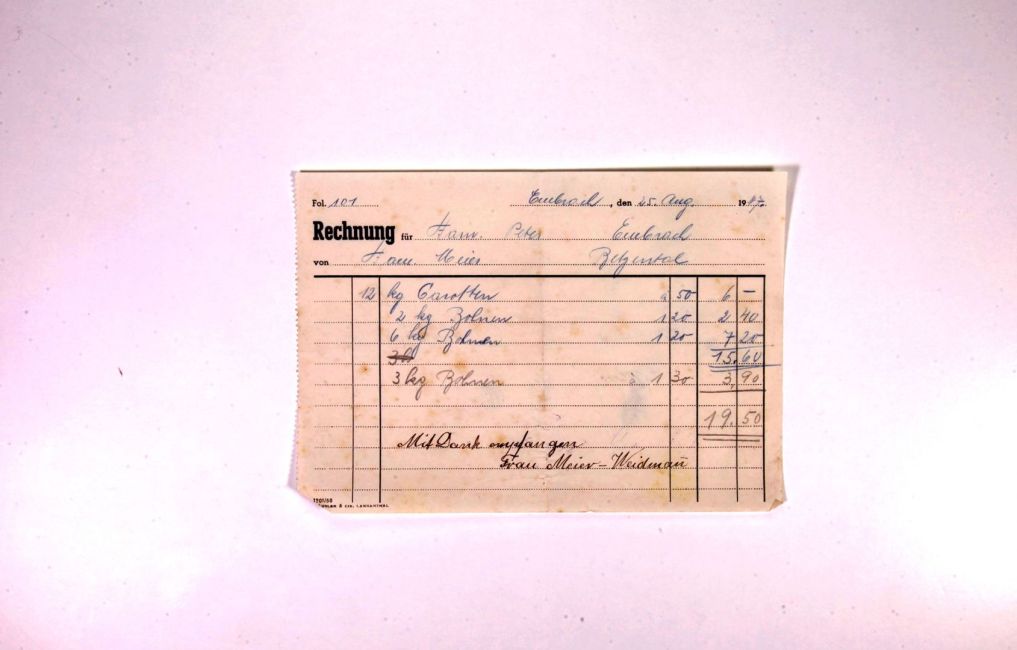 Fol. 101 Embrach, den 25. Aug. 19
Rechnung für Fam. Peter Embrach
von Fam. Meier
12 kg Carotten à 50 6 —
2 kg Bohnen 1 20 2 40
6 kg Bohnen 1 20 7 20
15.60
3 kg Bohnen à 1 30 3,90
19.50
Mit Dank empfangen
Frau Meier-Weidmann
& CIE. LANGENTHAL